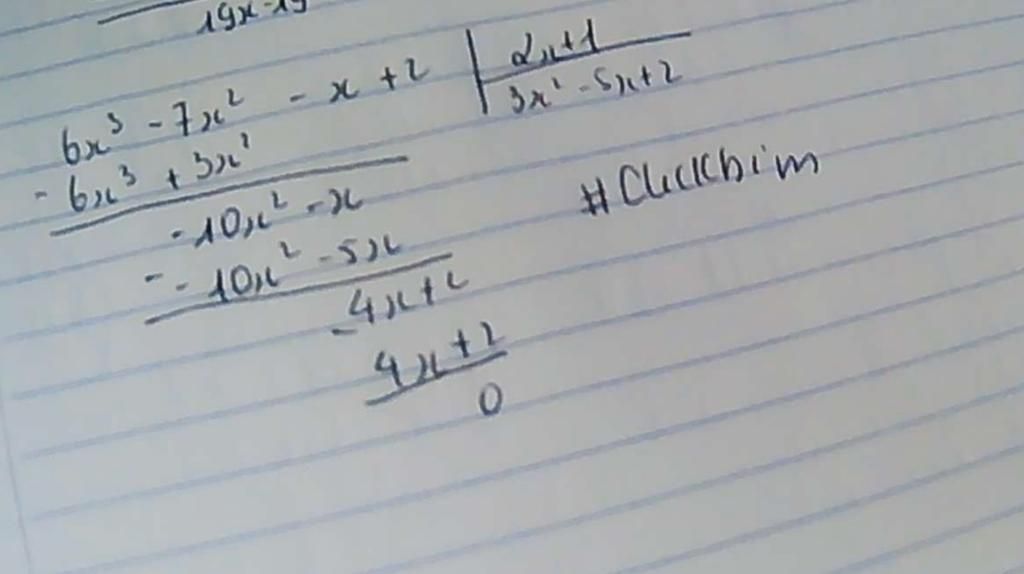 19x-19
6x³ - 7x² - x + 2 | 2x+1
- 6x³ + 3x² | 3x² - 5x + 2
- 10x² - x
- - 10x² - 5x
4x + 2
- 4x + 2
0
#Clickbim